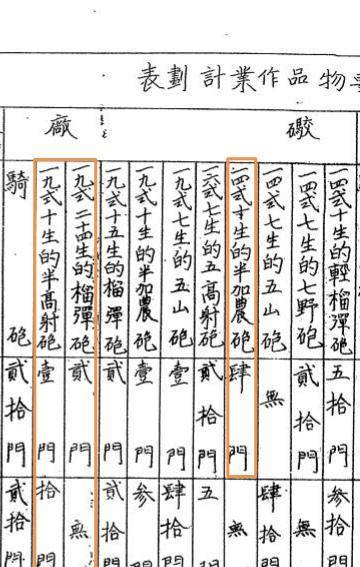 物品作業計劃表
礮廠
一四式十生的輕榴彈砲 五拾門 參拾門
一四式七生的七野砲 貳拾門 無
一四式七生的五山砲 無 肆拾門
一四式十生的半加農砲 肆門 無
一六式七生的五高射砲 貳拾門 五門
一九式七生的五山砲 壹門 肆拾門
一九式十生的半加農砲 壹門 參門
一九式十五生的榴彈砲 貳門 貳拾門
一九式二十四生的榴彈砲 貳門 無
一九式十生的半高射砲 壹門 拾門
騎砲 貳拾門 貳拾門